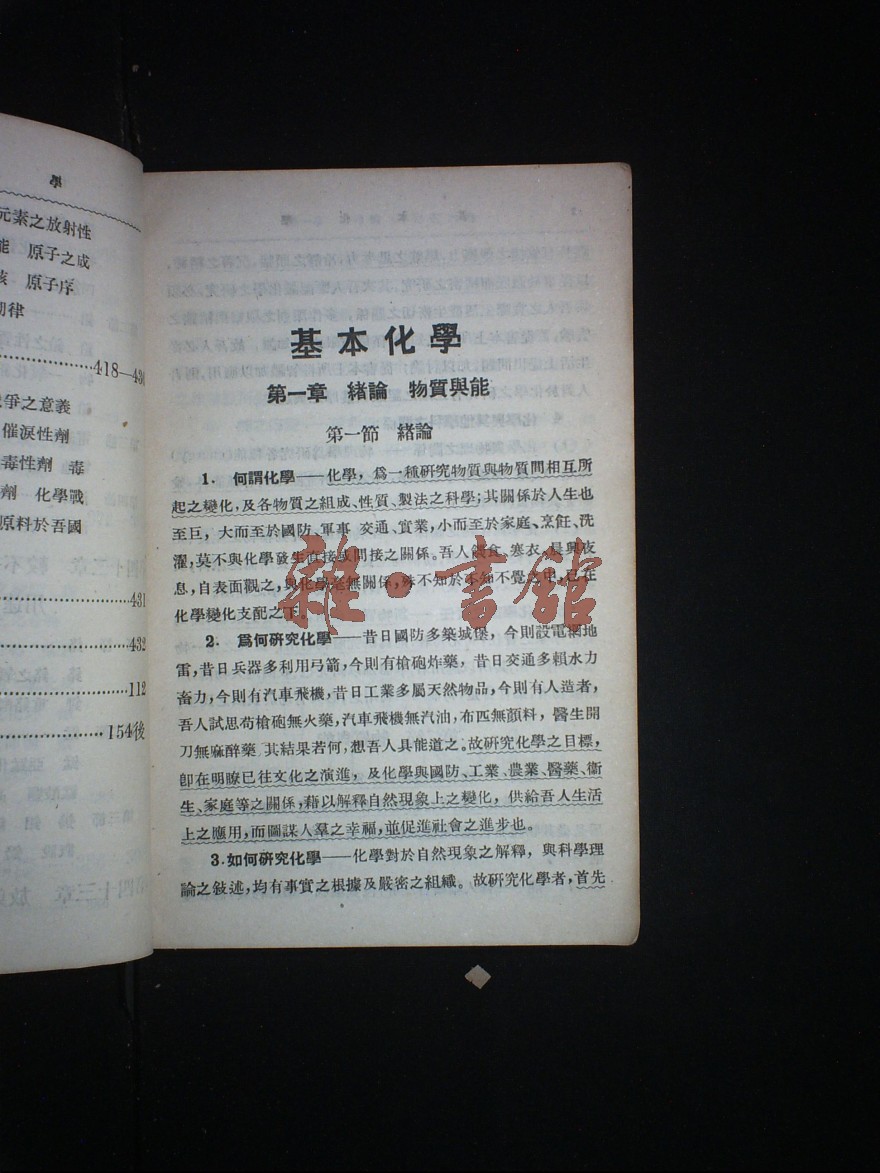 學
元素之放射性
能 原子之成
核 原子序
期律
418—430
戰爭之意義
催淚性劑
毒性劑 毒
劑 化學戰
原料於吾國
431
432
112
154後
基本化學
第一章 緒論 物質與能
第一節 緒論
1. 何謂化學——化學,爲一種研究物質與物質間相互所
起之變化,及各物質之組成、性質、製法之科學;其關係於人生也
至巨,大而至於國防、軍事 交通、實業,小而至於家庭、烹飪、洗
濯,莫不與化學發生直接或間接之關係。吾人餵食、寒衣、晨興夜
息,自表面觀之,與化學毫無關係,殊不知於不知不覺之中,已在
化學變化支配之下。
2. 爲何研究化學——昔日國防多築城堡,今則設電網地
雷,昔日兵器多利用弓箭,今則有槍砲炸藥,昔日交通多賴水力
畜力,今則有汽車飛機,昔日工業多屬天然物品,今則有人造者,
吾人試思苟槍砲無火藥,汽車飛機無汽油,布匹無顏料,醫生開
刀無麻醉藥 其結果若何,想吾人具能道之。故研究化學之目標,
卽在明瞭已往文化之演進,及化學與國防、工業、農業、醫藥、衞
生、家庭等之關係,藉以解釋自然現象上之變化,供給吾人生活
上之應用,而圖謀人羣之幸福,並促進社會之進步也。
3.如何研究化學——化學對於自然現象之解釋,與科學理
論之敍述,均有事實之根據及嚴密之組織。故研究化學者,首先
雜·書館